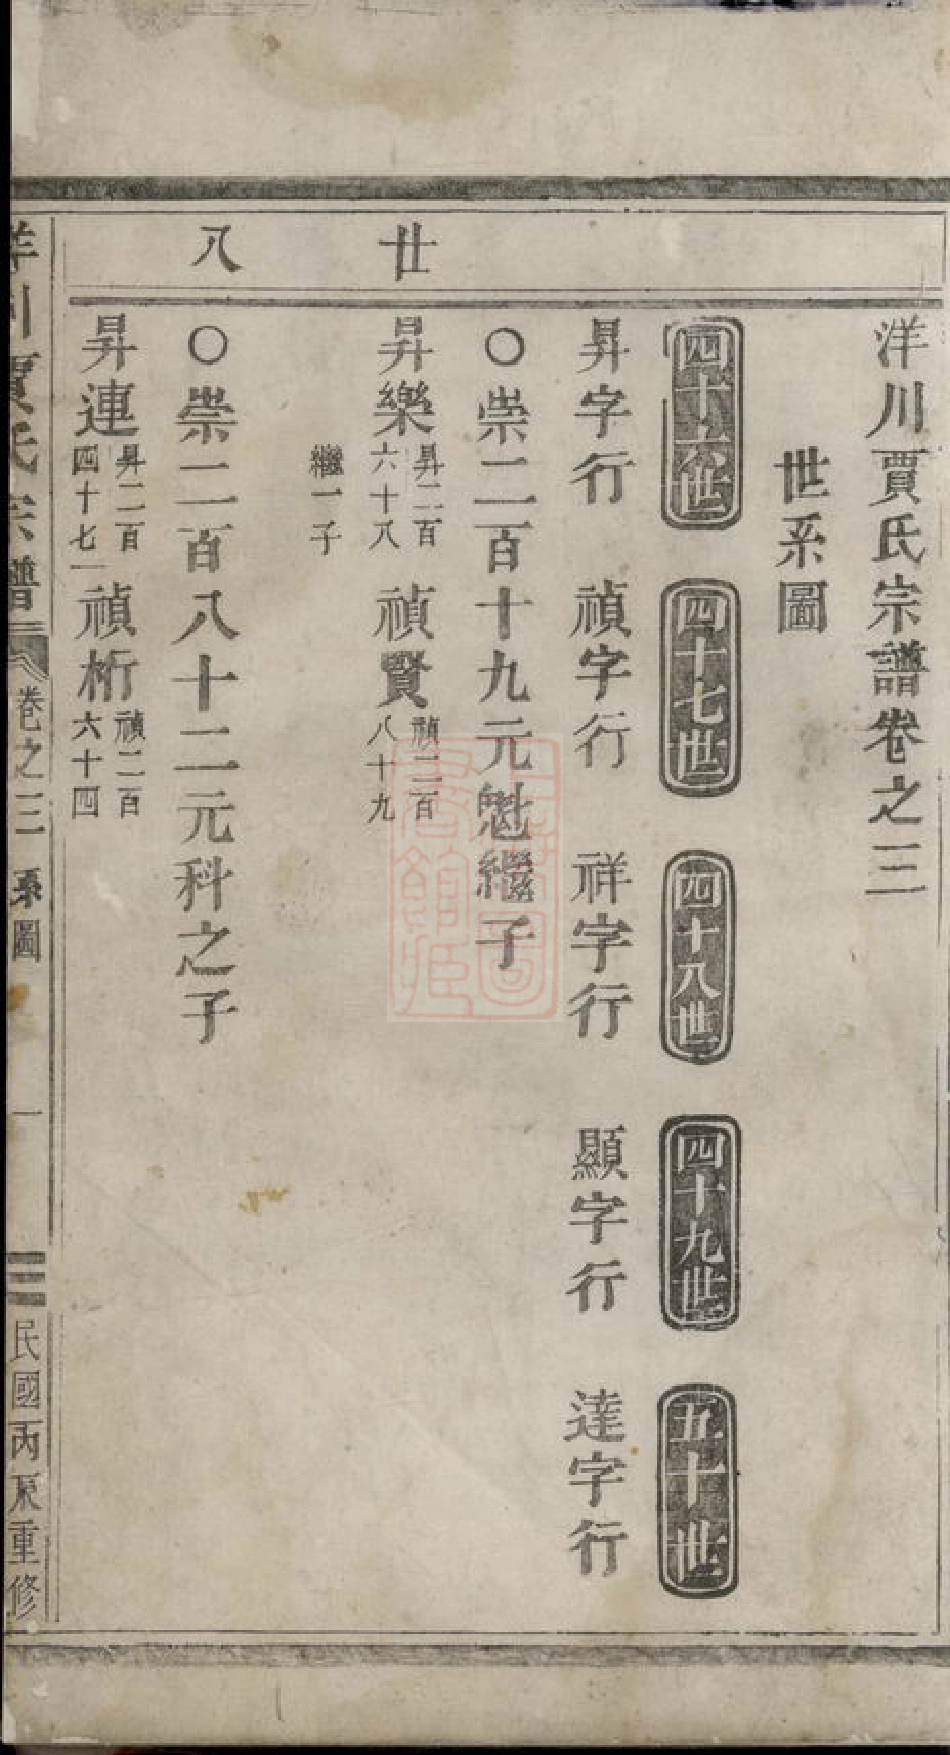 洋川賈氏宗譜卷之三
世系圖
四十六世 四十七世 四十八世 四十九世 五十世
昇字行 禎字行 祥字行 顯字行 達字行
○崇二百十九元魁繼子
廿
昇樂 昇二百六十八 禎賢 禎二百八十九
繼一子
八
○崇二百八十二元科之子
昇連 昇二百四十七 禎桁 禎二百六十四
洋川賈氏宗譜 卷之三 系圖 一 民國丙辰重修